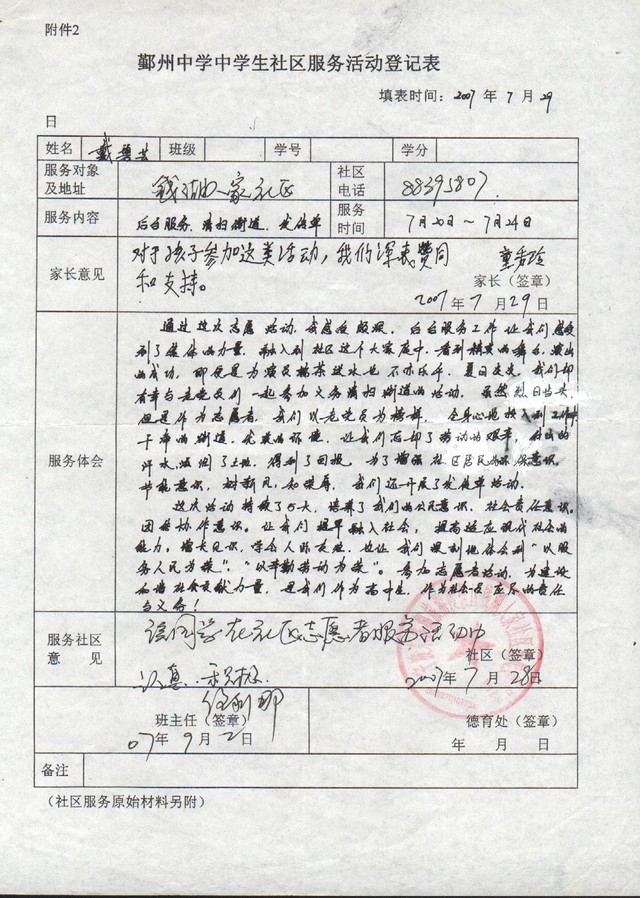 附件2
鄞州中学中学生社区服务活动登记表
填表时间：2007 年 7 月 29
日
姓名 戴碧芸 班级 学号 学分
服务对象及地址 钱湖人家社区 社区电话 88395807
服务内容 后台服务、清扫街道、发传单 服务时间 7月20日～7月24日
家长意见 对于孩子参加这类活动，我们深表赞同
和支持。
家长（签章）
2007年 7 月 29 日
服务体会
通过这次志愿活动，我感受颇深。后台服务工作让我们感受
到了集体的力量，融入到社区这个大家庭中，看到精美的舞台，演出
的成功，即便是为演员端茶送水也不亦乐乎。夏日炎炎，我们却
有幸与老党员们一起参加义务清扫街道的活动。虽然烈日当头，
但是作为志愿者，我们以老党员为榜样，全身心地投入到工作中，
干净的街道，优美的环境，让我们忘却了劳动的艰辛，付出的
汗水，得到了回报。为了增强社区居民的环保意识，
节能意识，树新风，知荣辱，我们还开展了发传单活动。
这次活动持续了5天，培养了我们的公民意识，社会责任意识，
团结协作意识。让我们提早融入社会，提高适应现代社会的
能力，增长见识，学会人际交往，也让我们深刻地体会到“以服
务人民为荣”，“以辛勤劳动为荣”。参加志愿者活动，为建设
和谐社会贡献力量，是我们作为高中生，作为社会公民应尽的责任
与义务！
服务社区意见 该同学在社区志愿者服务活动中
认真、积极。
社区（签章）
2007年 7 月 28日
班主任（签章）
07年 9 月 2 日
德育处（签章）
年 月 日
备注
（社区服务原始材料另附）